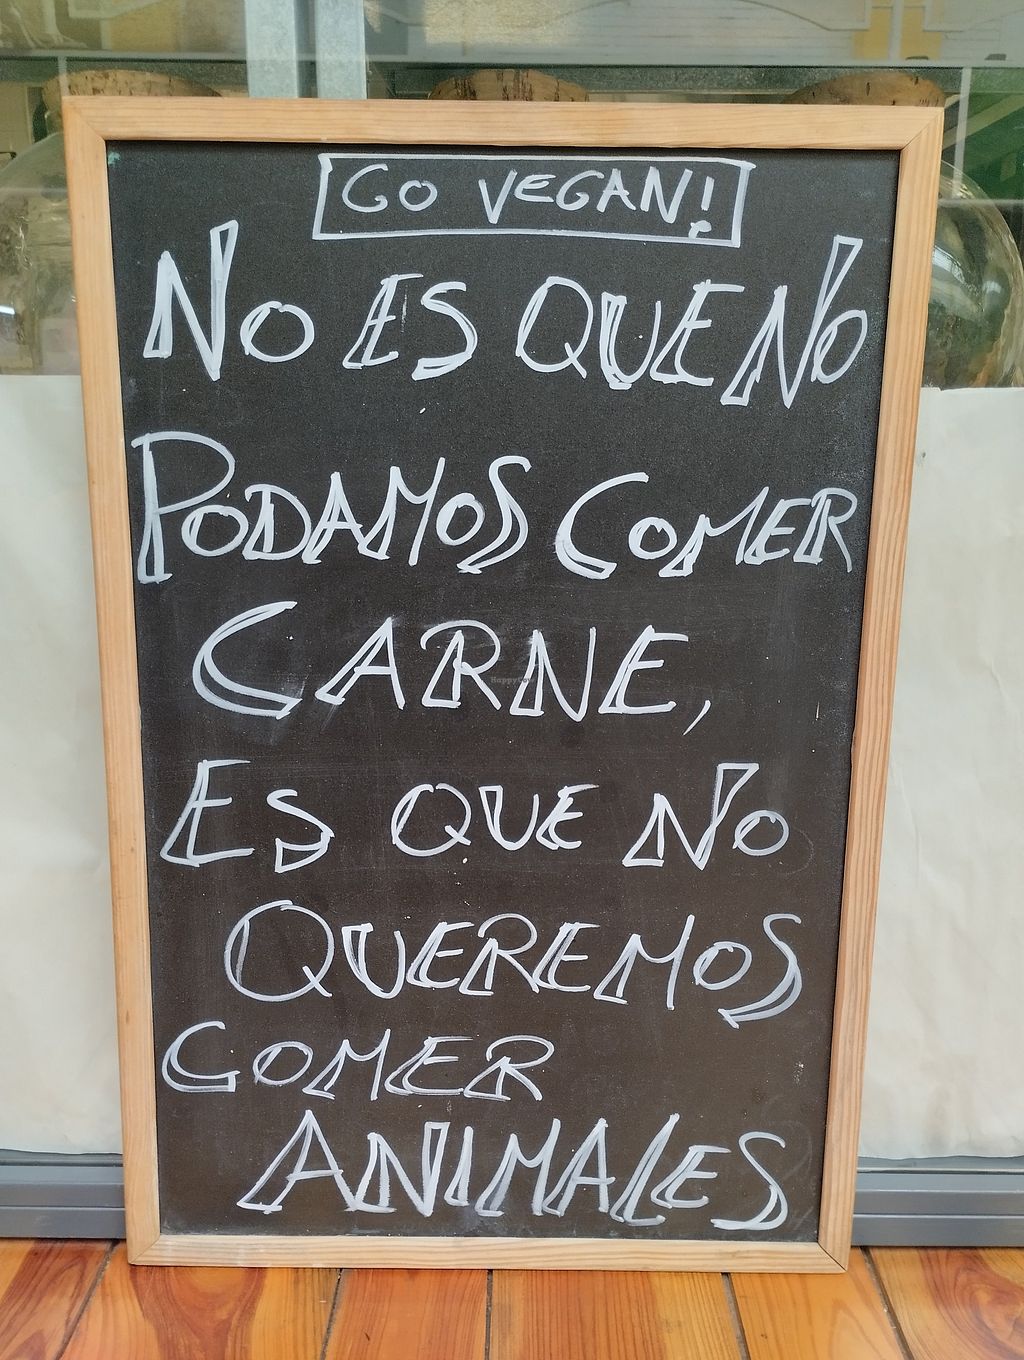 GO VEGAN!
NO ES QUE NO
PODAMOS COMER
CARNE,
ES QUE NO
QUEREMOS
COMER
ANIMALES
HappyCow